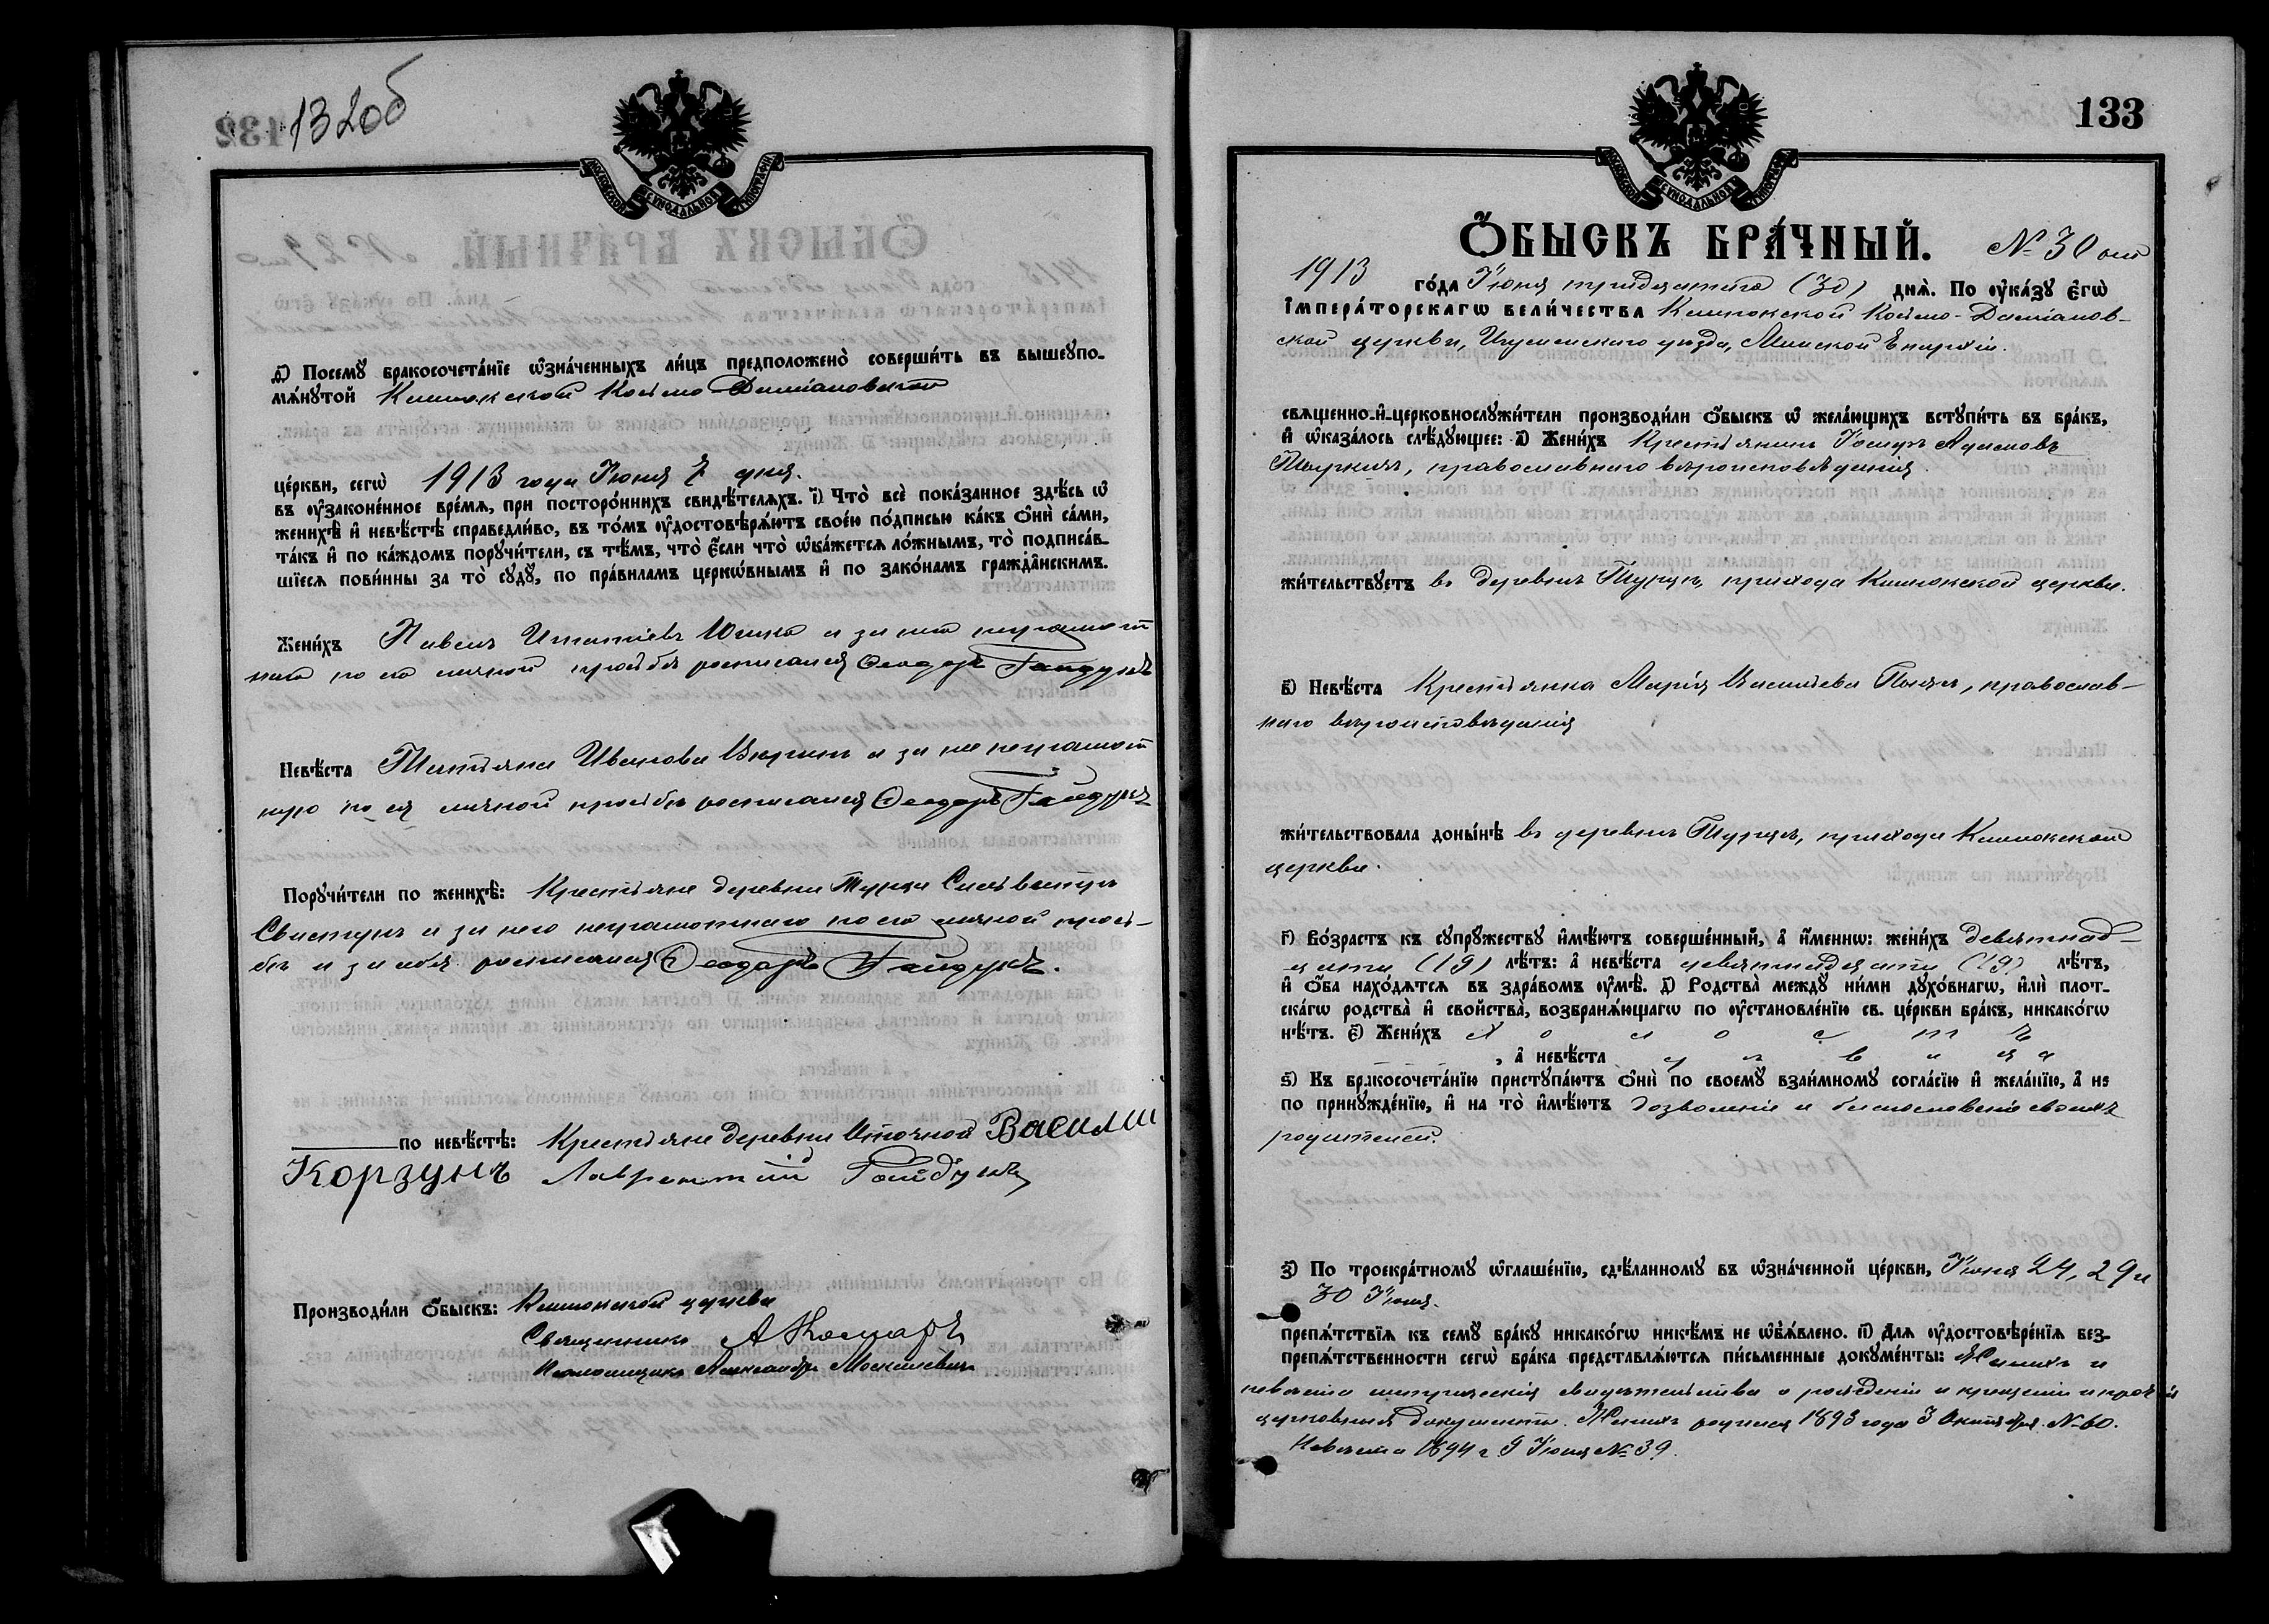 132об
МОСКОВСКОЙ СѴНОДАЛЬНОЙ ТИПОГРАФІИ
д҃) Посемꙋ бракосочета́нїе ѡ҆зна́ченныхъ ли́цъ предположено̀ соверши́ть въ вышеупо-
мѧ́нꙋтой Клинокской Космо-Даміановской
це́ркви, сегѡ̀ 1913 года Іюня 7 дня.
въ ᲂу҆зако́ненное вре́мѧ, при посторо́ннихъ свидѣ́телѧхъ. і҃) Что̀ всѐ пока́занное здѣ́сь ѡ҆
женихѣ̀ и҆ невѣ́стѣ справедли́во, въ то́мъ ᲂу҆достовѣрѧ́ютъ свое́ю по́дписью ка́къ ѻ҆нѝ са́ми,
та́къ и҆ по ка́ждомъ порꙋчи́тели, съ тѣ́мъ, что̀ є҆́сли что̀ ѡ҆ка́жетсѧ ло́жнымъ, то̀ подписа́в-
шїесѧ пови́нны за то̀ сꙋдꙋ̀, по пра́виламъ церкѡ́внымъ и҆ по зако́намъ гражда̂нскимъ.
Жени́хъ Павелъ Игнатіевъ Юшко а за него неграмот
наго по его личной просьбѣ росписался Ѳеодоръ Гайдукъ
Невѣ́ста Татіана Иванова а за нее неграмот
ную по ея личной просьбѣ росписался Ѳеодоръ Гайдукъ
Порꙋчи́тели по женихѣ̀: Крестьяне деревни Турца Сильвестръ
Свистунъ а за него неграмотнаго по его личной прось-
бѣ и за себя росписался Ѳеодоръ Гайдукъ.
по невѣ́стѣ: Крестьяне деревни Василий
Корзунъ Лаврентий Гайдукъ
Производи́ли ѻ҆́быскъ: Клинокской церкви
Священникъ
Псаломщикъ Александръ
133
МОСКОВСКОЙ СѴНОДАЛЬНОЙ ТИПОГРАФІИ
Ѻ҆БЫСКЪ БРА́ЧНЫЙ. № 30 ый
1913 го́да Іюня тридцатаго (30) днѧ̀. По ᲂу҆ка́зꙋ є҆гѡ̀
і҆мпера́торскагѡ вели́чества Клинокской Космо-Даміанов-
ской церкви, Игуменскаго уѣзда, Минской Епархіи.
свѧщенно-и҆-церковнослꙋжи́тели производи́ли ѻ҆́быскъ ѡ҆ жела́ющихъ встꙋпи́ть въ бра́къ,
и҆ ѡ҆каза́лось слѣ́дꙋющее: а҃) Жени́хъ Крестьянинъ Іосифъ Адамовъ
православнаго вѣроисповѣданія.
жи́тельствꙋетъ въ деревнѣ Турцѣ, прихода Клинокской церкви.
в҃) Невѣ́ста Крестьянка Марія Васильева православ-
наго вѣроисповѣданія
жи́тельствовала доны́нѣ въ деревнѣ Турцѣ, прихода Клинокской
церкви.
г҃) Во́зрастъ къ сꙋпрꙋ́жествꙋ и҆мѣ́ютъ соверше́нный, а҆ и҆́меннѡ: жени́хъ девятнад-
цати (19) лѣ́тъ: а҆ невѣ́ста девятнадцати (19) лѣ́тъ,
и҆ ѻ҆́ба нахо́дѧтсѧ въ здра́вомъ ᲂу҆мѣ̀. д҃) Родства̀ междꙋ̀ ни́ми дꙋхо́внагѡ, и҆лѝ плот-
ска́гѡ родства̀ и҆ свойства̀, возбранѧ́ющагѡ по ᲂу҆становле́нїю св. це́ркви бра́къ, никако́гѡ
нѣ́тъ. є҃) Жени́хъ х о л о с т ъ
, а҆ невѣ́ста д ѣ в и ц а
ѕ҃) Къ бракосочета́нїю пристꙋпа́ютъ ѻ҆нѝ по своемꙋ̀ взаи́мномꙋ согла́сїю и҆ жела́нїю, а҆ не
по принꙋжде́нїю, и҆ на то̀ и҆мѣ́ютъ дозволеніе и благословеніе своихъ
родителей.
з҃) По троекра́тномꙋ ѡ҆глаше́нїю, сдѣ́ланномꙋ въ ѡ҆зна́ченной це́ркви, Іюня 24, 29 и
30 Іюня.
препѧ́тствїѧ къ семꙋ̀ бра́кꙋ никако́гѡ никѣ́мъ не ѡ҆б̾ѧ́влено. и҃) Длѧ ᲂу҆достовѣре́нїѧ без-
препѧ́тственности сегѡ̀ бра́ка представлѧ́ютсѧ пи́сьменные докꙋме́нты: Жениха и
невѣсты метрическія свидѣтельства о рожденіи и крещеніи и проч
церковные документы. Женихъ родился 1893 года 3 Октября № 60.
Невѣста 1894 г 9 Іюня № 39.